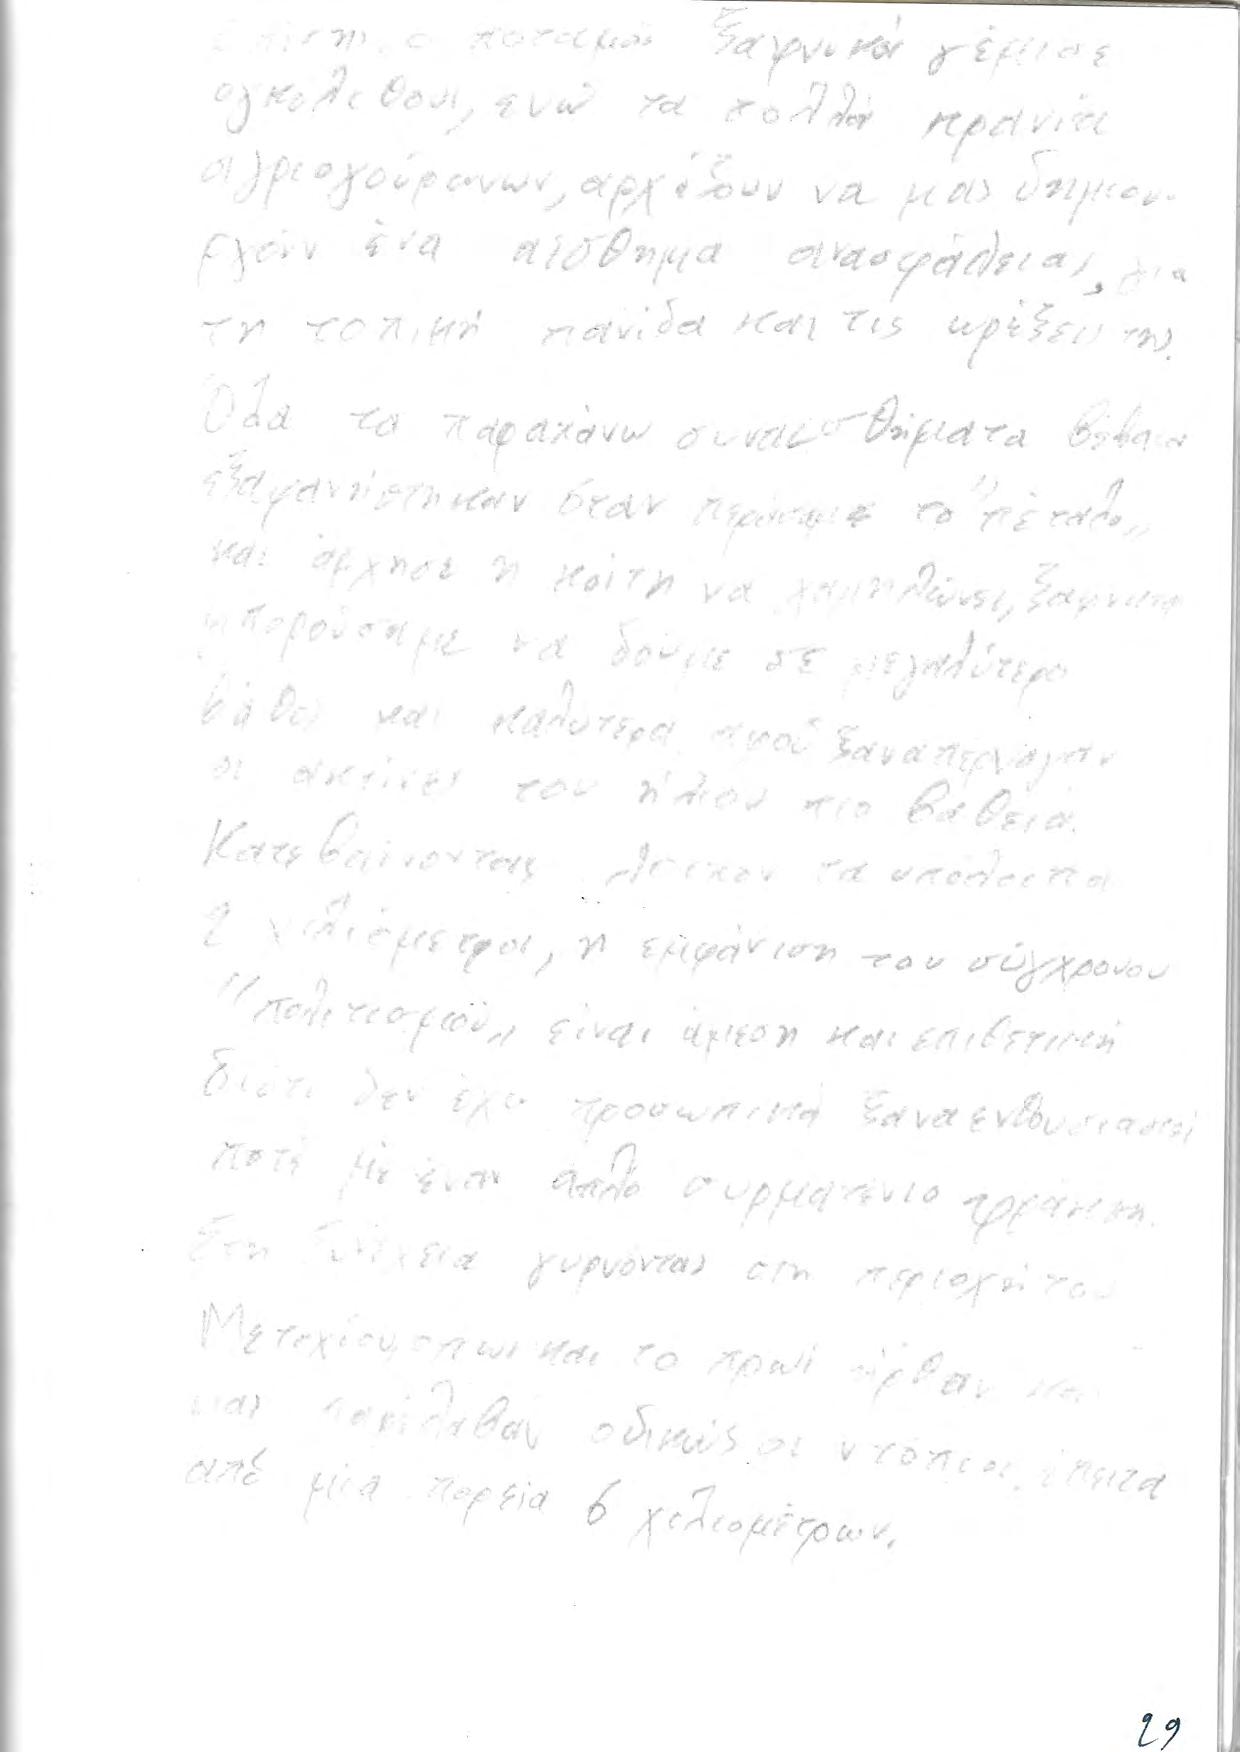 Επίσης ο ποταμός ξαφνικά γέμισε
ογκόλιθους, ενώ τα πολλά κρανία
αγριογούρουνων, αρχίζουν να μας δημιου-
ργούν ένα αίσθημα ανασφάλειας, για
τη τοπική πανίδα και τις ορέξεις της.
Όλα τα παραπάνω συναισθήματα βέβαια
εξαφανήστηκαν όταν περάσαμε το "πέταλο"
και άρχησε η κοίτη να χαμηλώνει, ξαφνικά
μπορούσαμε να δούμε σε μεγαλύτερο
βάθος και καλυτερα αφού ξαναπερνάγαν
οι ακτίνες του ήλιου πιο βαθειά.
Κατεβαίνοντας λοιπον τα υπόλοιπα
2 χιλιόμετρα, η εμφάνιση του σύγχρονου
"πολιτισμού" είναι άμεση και επιθετική
διότι δεν έχω προσωπικά ξαναενθουσιαστεί
ποτέ με έναν απλό συρματένιο φράκτη.
Στη συνέχεια γυρνόντας στη περιοχή του
Μετοχίου, όπως και το πρωί ήρθαν και
μας παρέλαβαν οδικώς οι ντόπιοι, έπειτα
από μία πορεία 6 χιλιομέτρων.
29